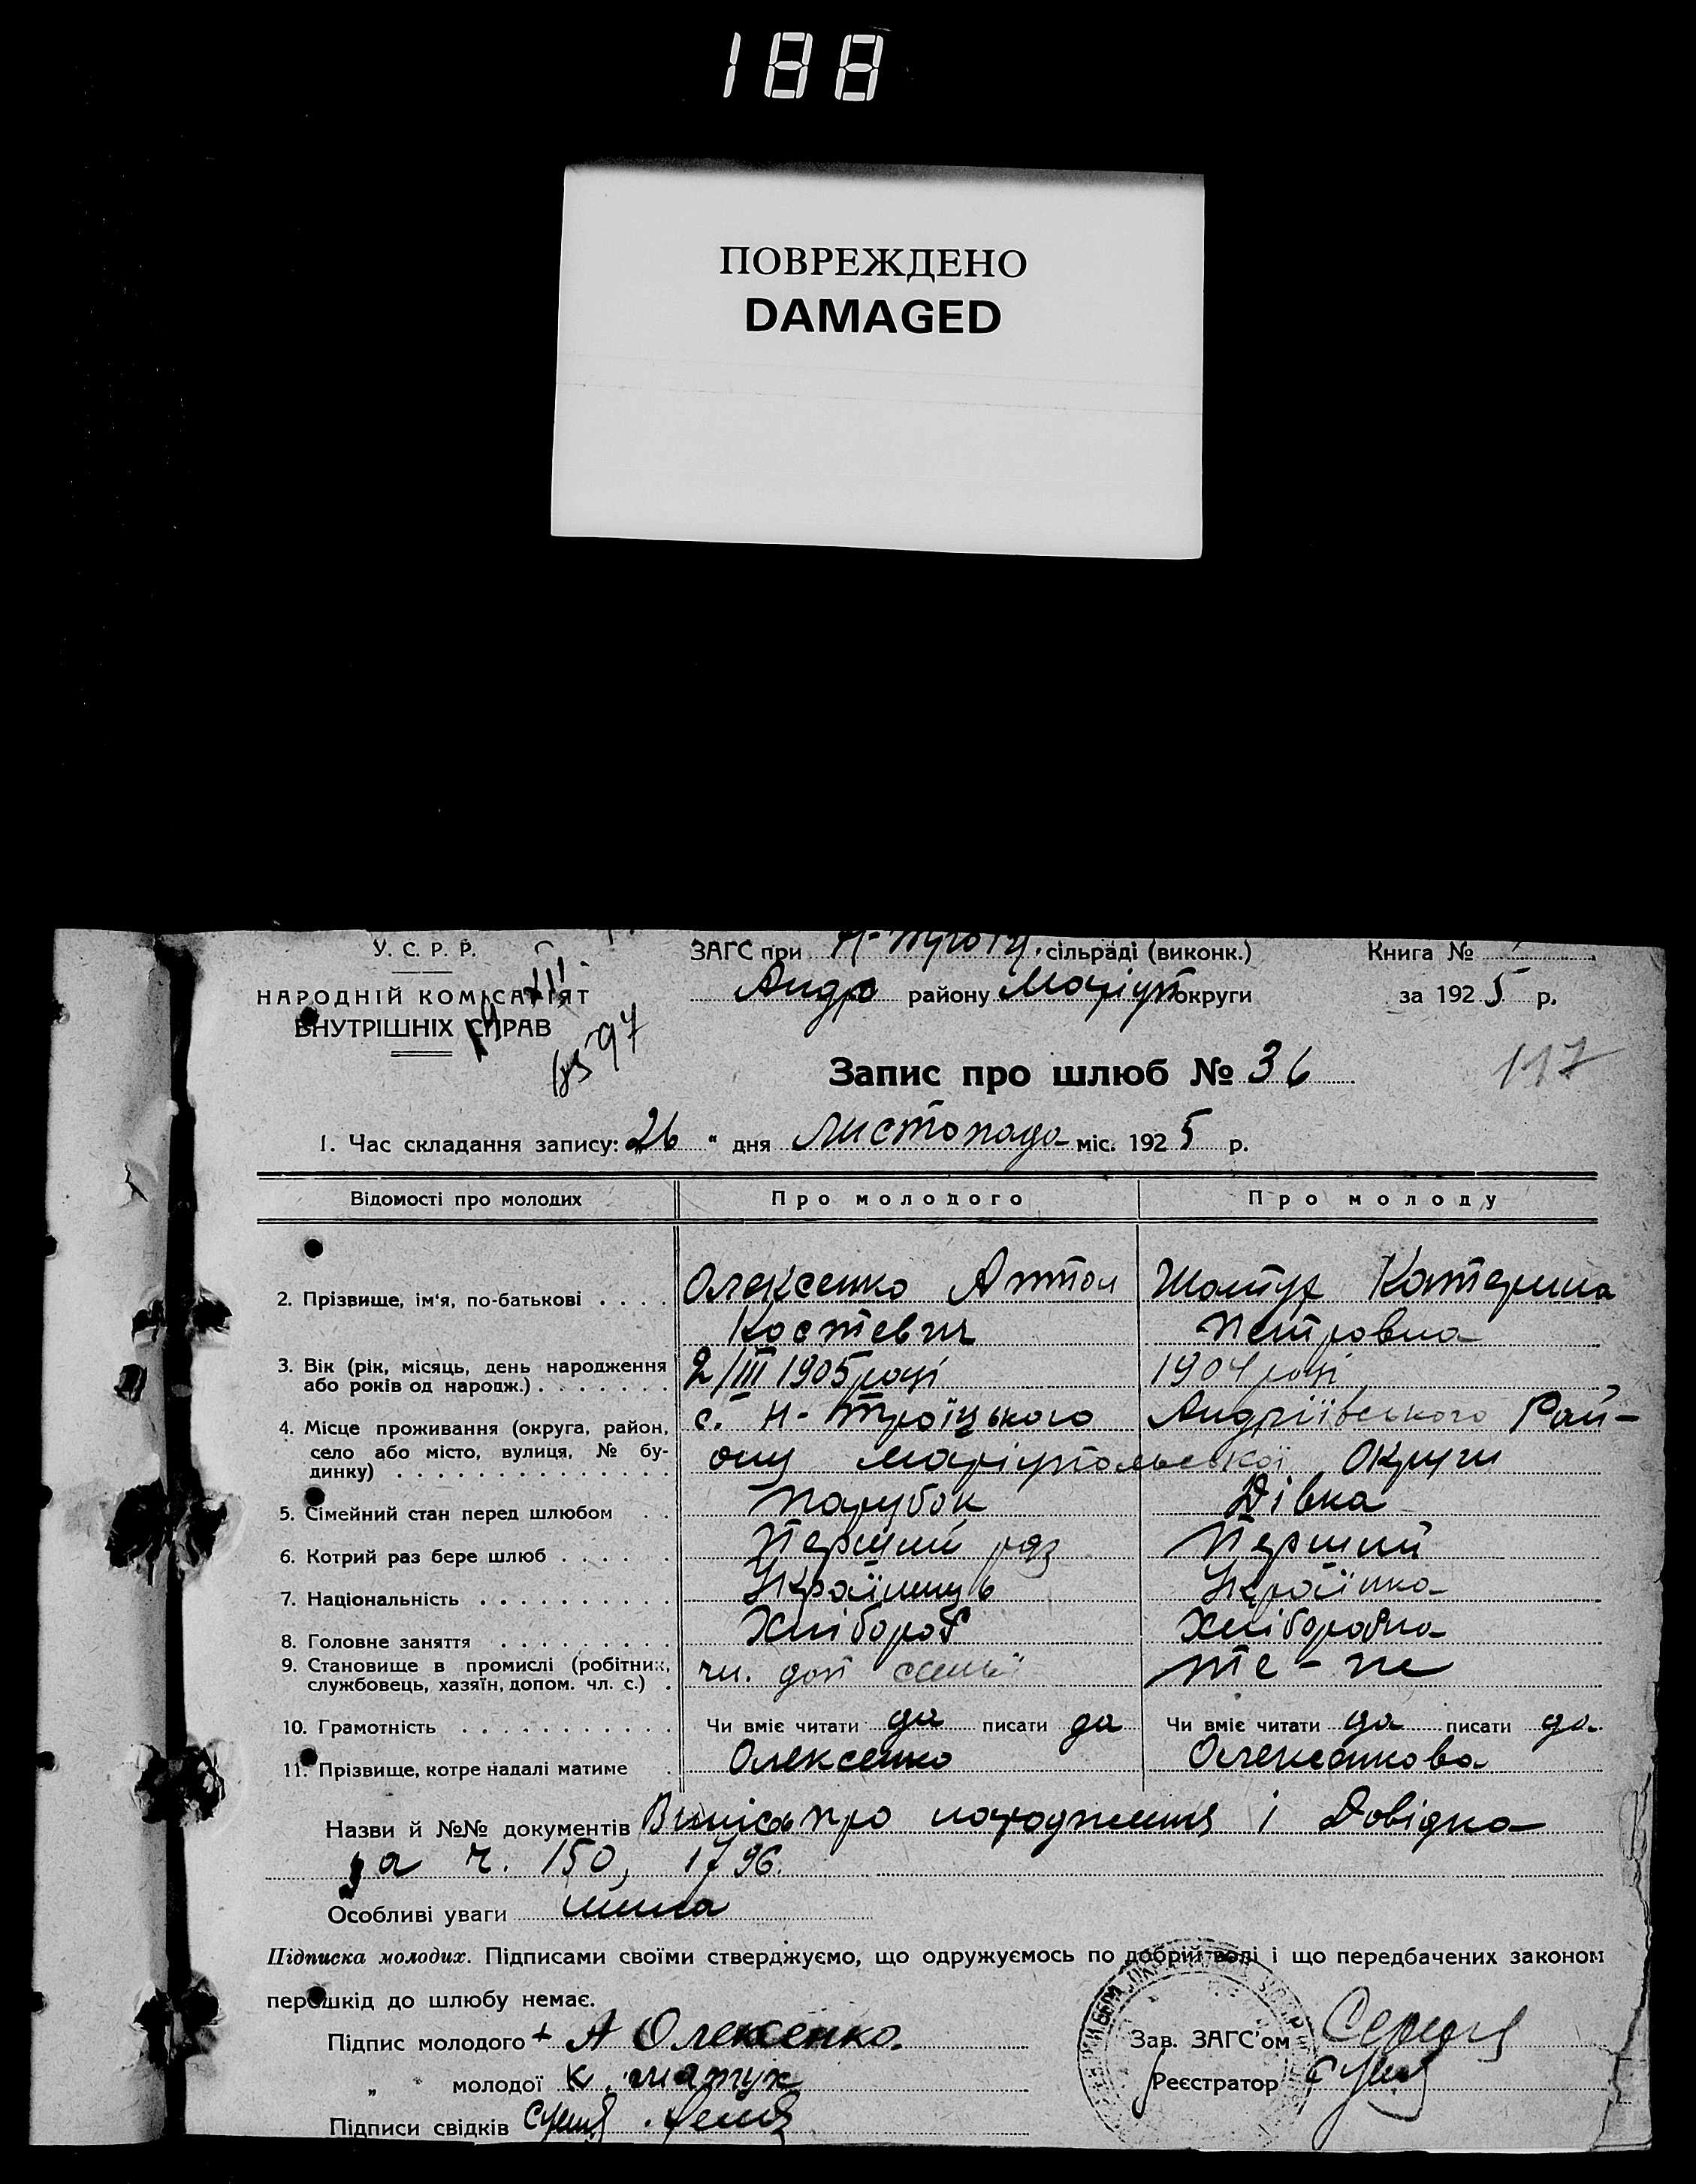 188
ПОВРЕЖДЕНО
DAMAGED
У. С. Р. Р.
НАРОДНІЙ КОМІСАРІЯТ
ВНУТРІШНІХ СПРАВ
ЗАГС при Н-Троїц. сільраді (виконк.)
Андр району Маріуп округи
Книга №
за 1925 р.
Запис про шлюб № 36
117
1. Час складання запису: „26" дня Листопада міс. 1925 р.
Відомості про молодих Про молодого Про молоду
2. Прізвище, ім'я, по-батькові . . . . Олексенко Антон Катерина
Костевич Петровна
3. Вік (рік, місяць, день народження 2/III 1905 році 1904 році
або років од народж.) . . . . . . .
4. Місце проживання (округа, район, с. Н-Троїцького Андріївського Рай-
село або місто, вулиця, № бу- ону Маріупольської Округи
динку) . . . . . . . . . . . . . .
5. Сімейний стан перед шлюбом . . Парубок Дівка
6. Котрий раз бере шлюб . . . . . Перший раз Перший
7. Національність . . . . . . . . . . Українець Українка
8. Головне заняття . . . . . . . . . Хлібороб Хліборобка
9. Становище в промислі (робітник, чл. доп семьї те-ж
службовець, хазяїн, допом. чл. с.) .
10. Грамотність . . . . . . . . . . . Чи вміє читати да писати да Чи вміє читати да писати да
11. Прізвище, котре надалі матиме . Олексенко Олексенкова
Назви й №№ документів Випісь про народження і Довідка
за ч. 150, 1796.
Особливі уваги нима
Підписка молодих. Підписами своїми стверджуємо, що одружуємось по добрій волі і що передбачених законом
перешкід до шлюбу немає.
Підпис молодого + А Олексенко. Зав. ЗАГС'ом
„ „ молодої К. Реєстратор
Підписи свідків